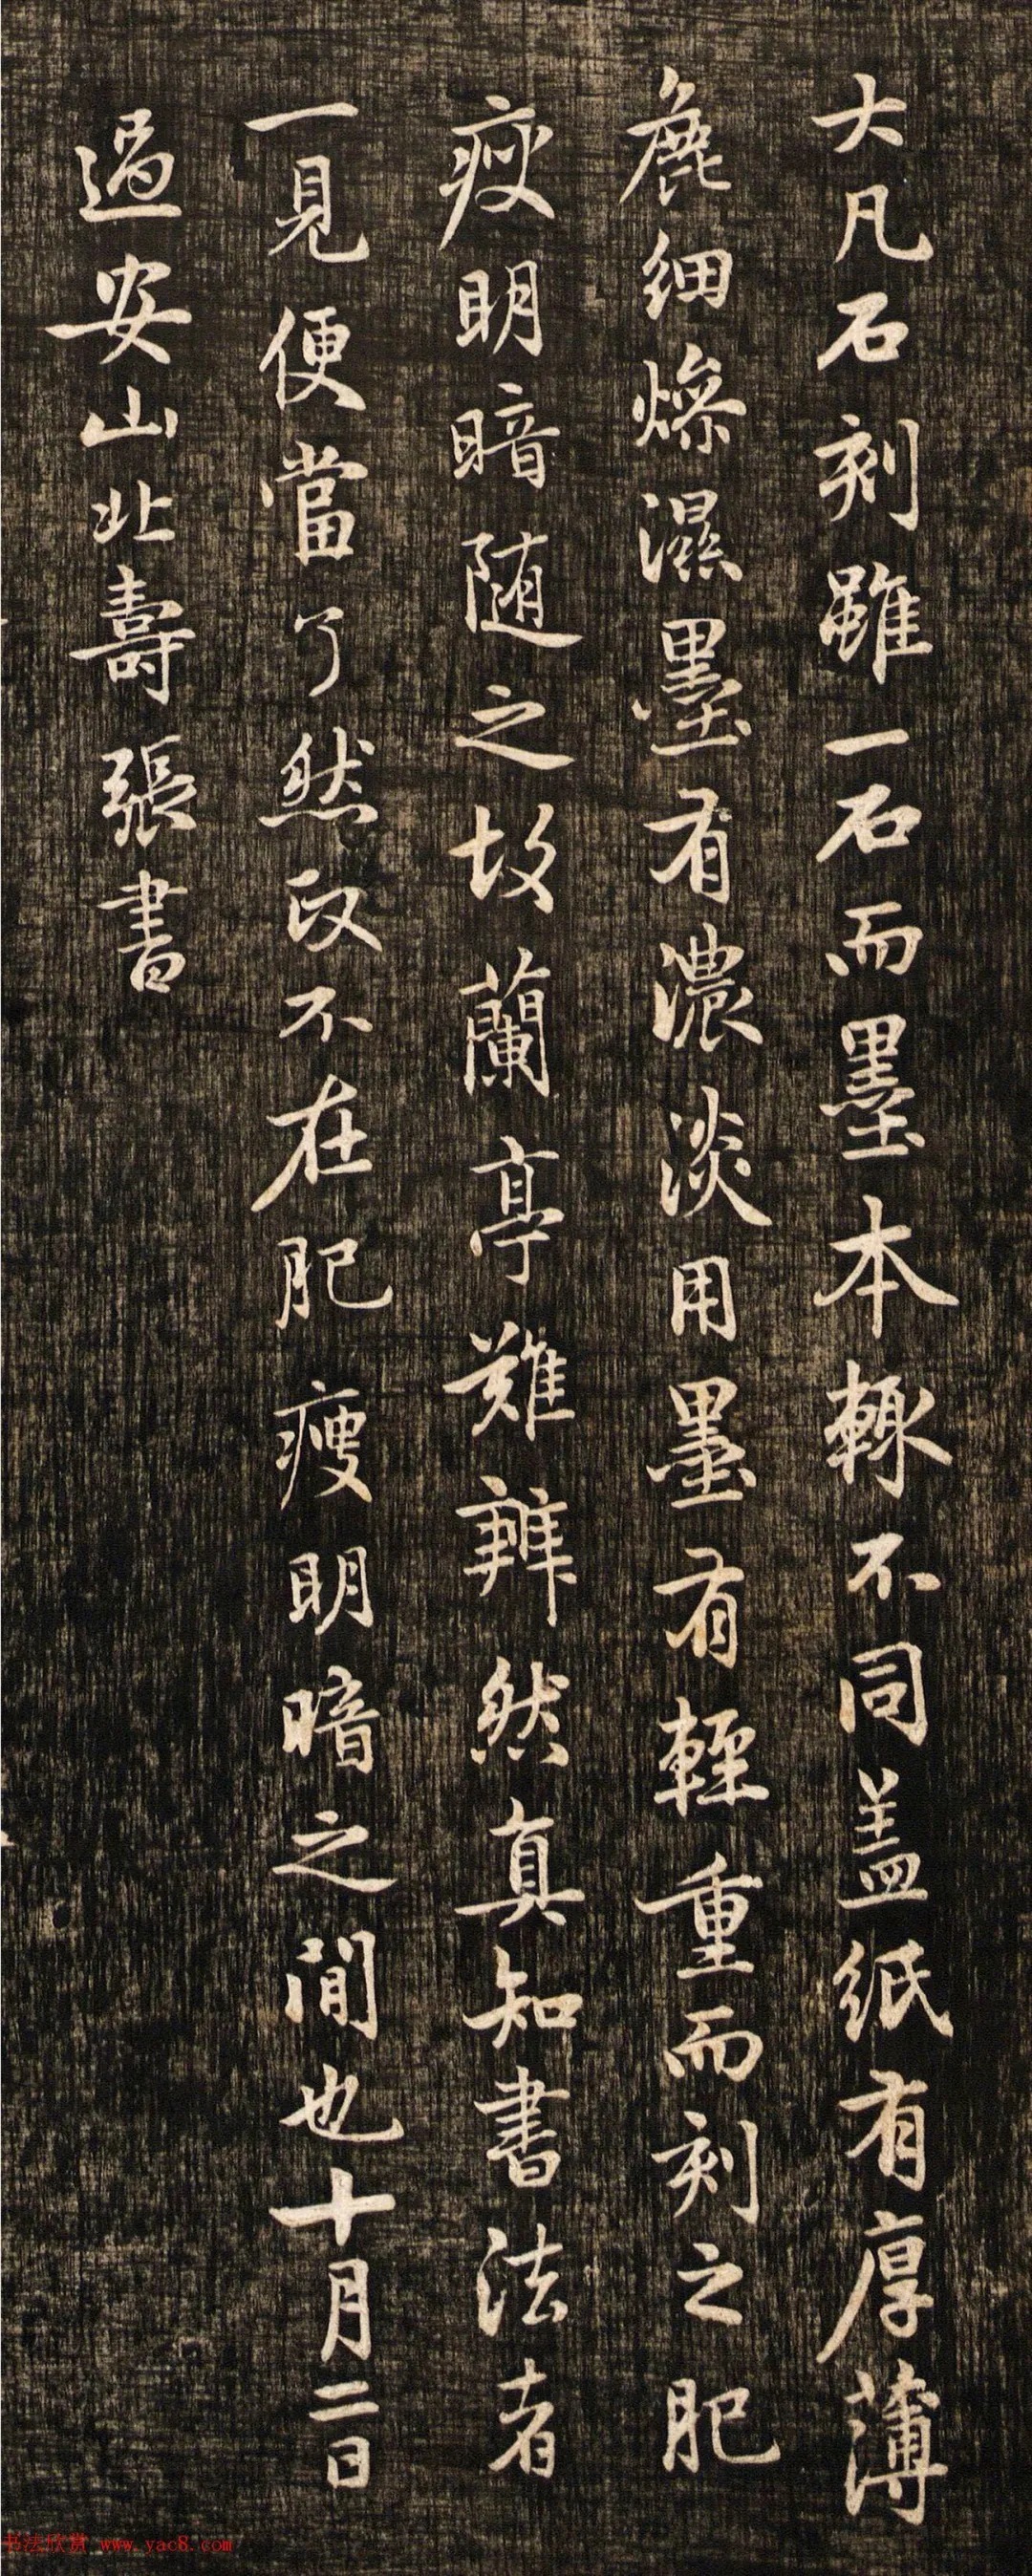 大凡石刻雖一石而墨本輒不同盖紙有厚薄
麁細燥濕墨有濃淡用墨有輕重而刻之肥
瘦明暗随之故蘭亭難辨然真知書法者
一見便當了然政不在肥瘦明暗之間也十月二日
過安山北壽張書
书法欣赏 www.yac8.com